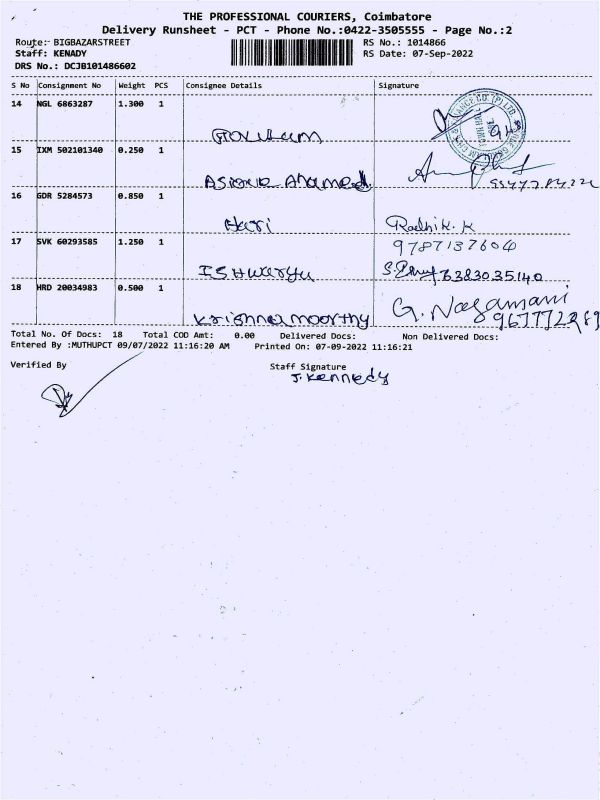 THE PROFESSIONAL COURIERS, Coimbatore
Delivery Runsheet - PCT - Phone No.:0422-3505555 - Page No.:2
Route:- BIGBAZARSTREET RS No.: 1014866
Staff: KENADY RS Date: 07-Sep-2022
DRS No.: DCJB101486602
S No Consignment No Weight PCS Consignee Details Signature
14 NGL 6863287 1.300 1
Gowtham
15 IXM 502101340 0.250 1
Ashique Ahamed
16 GDR 5284573 0.850 1
Hari Radhik. K
17 SVK 60293585 1.250 1 9787137604
Ishwarya 6383035140
18 HRD 20034983 0.500 1 G. Nagamani
Krishnamoorthy
Total No. Of Docs: 18 Total COD Amt: 0.00 Delivered Docs: Non Delivered Docs:
Entered By :MUTHUPCT 09/07/2022 11:16:20 AM Printed On: 07-09-2022 11:16:21
Verified By Staff Signature
J. Kennedy